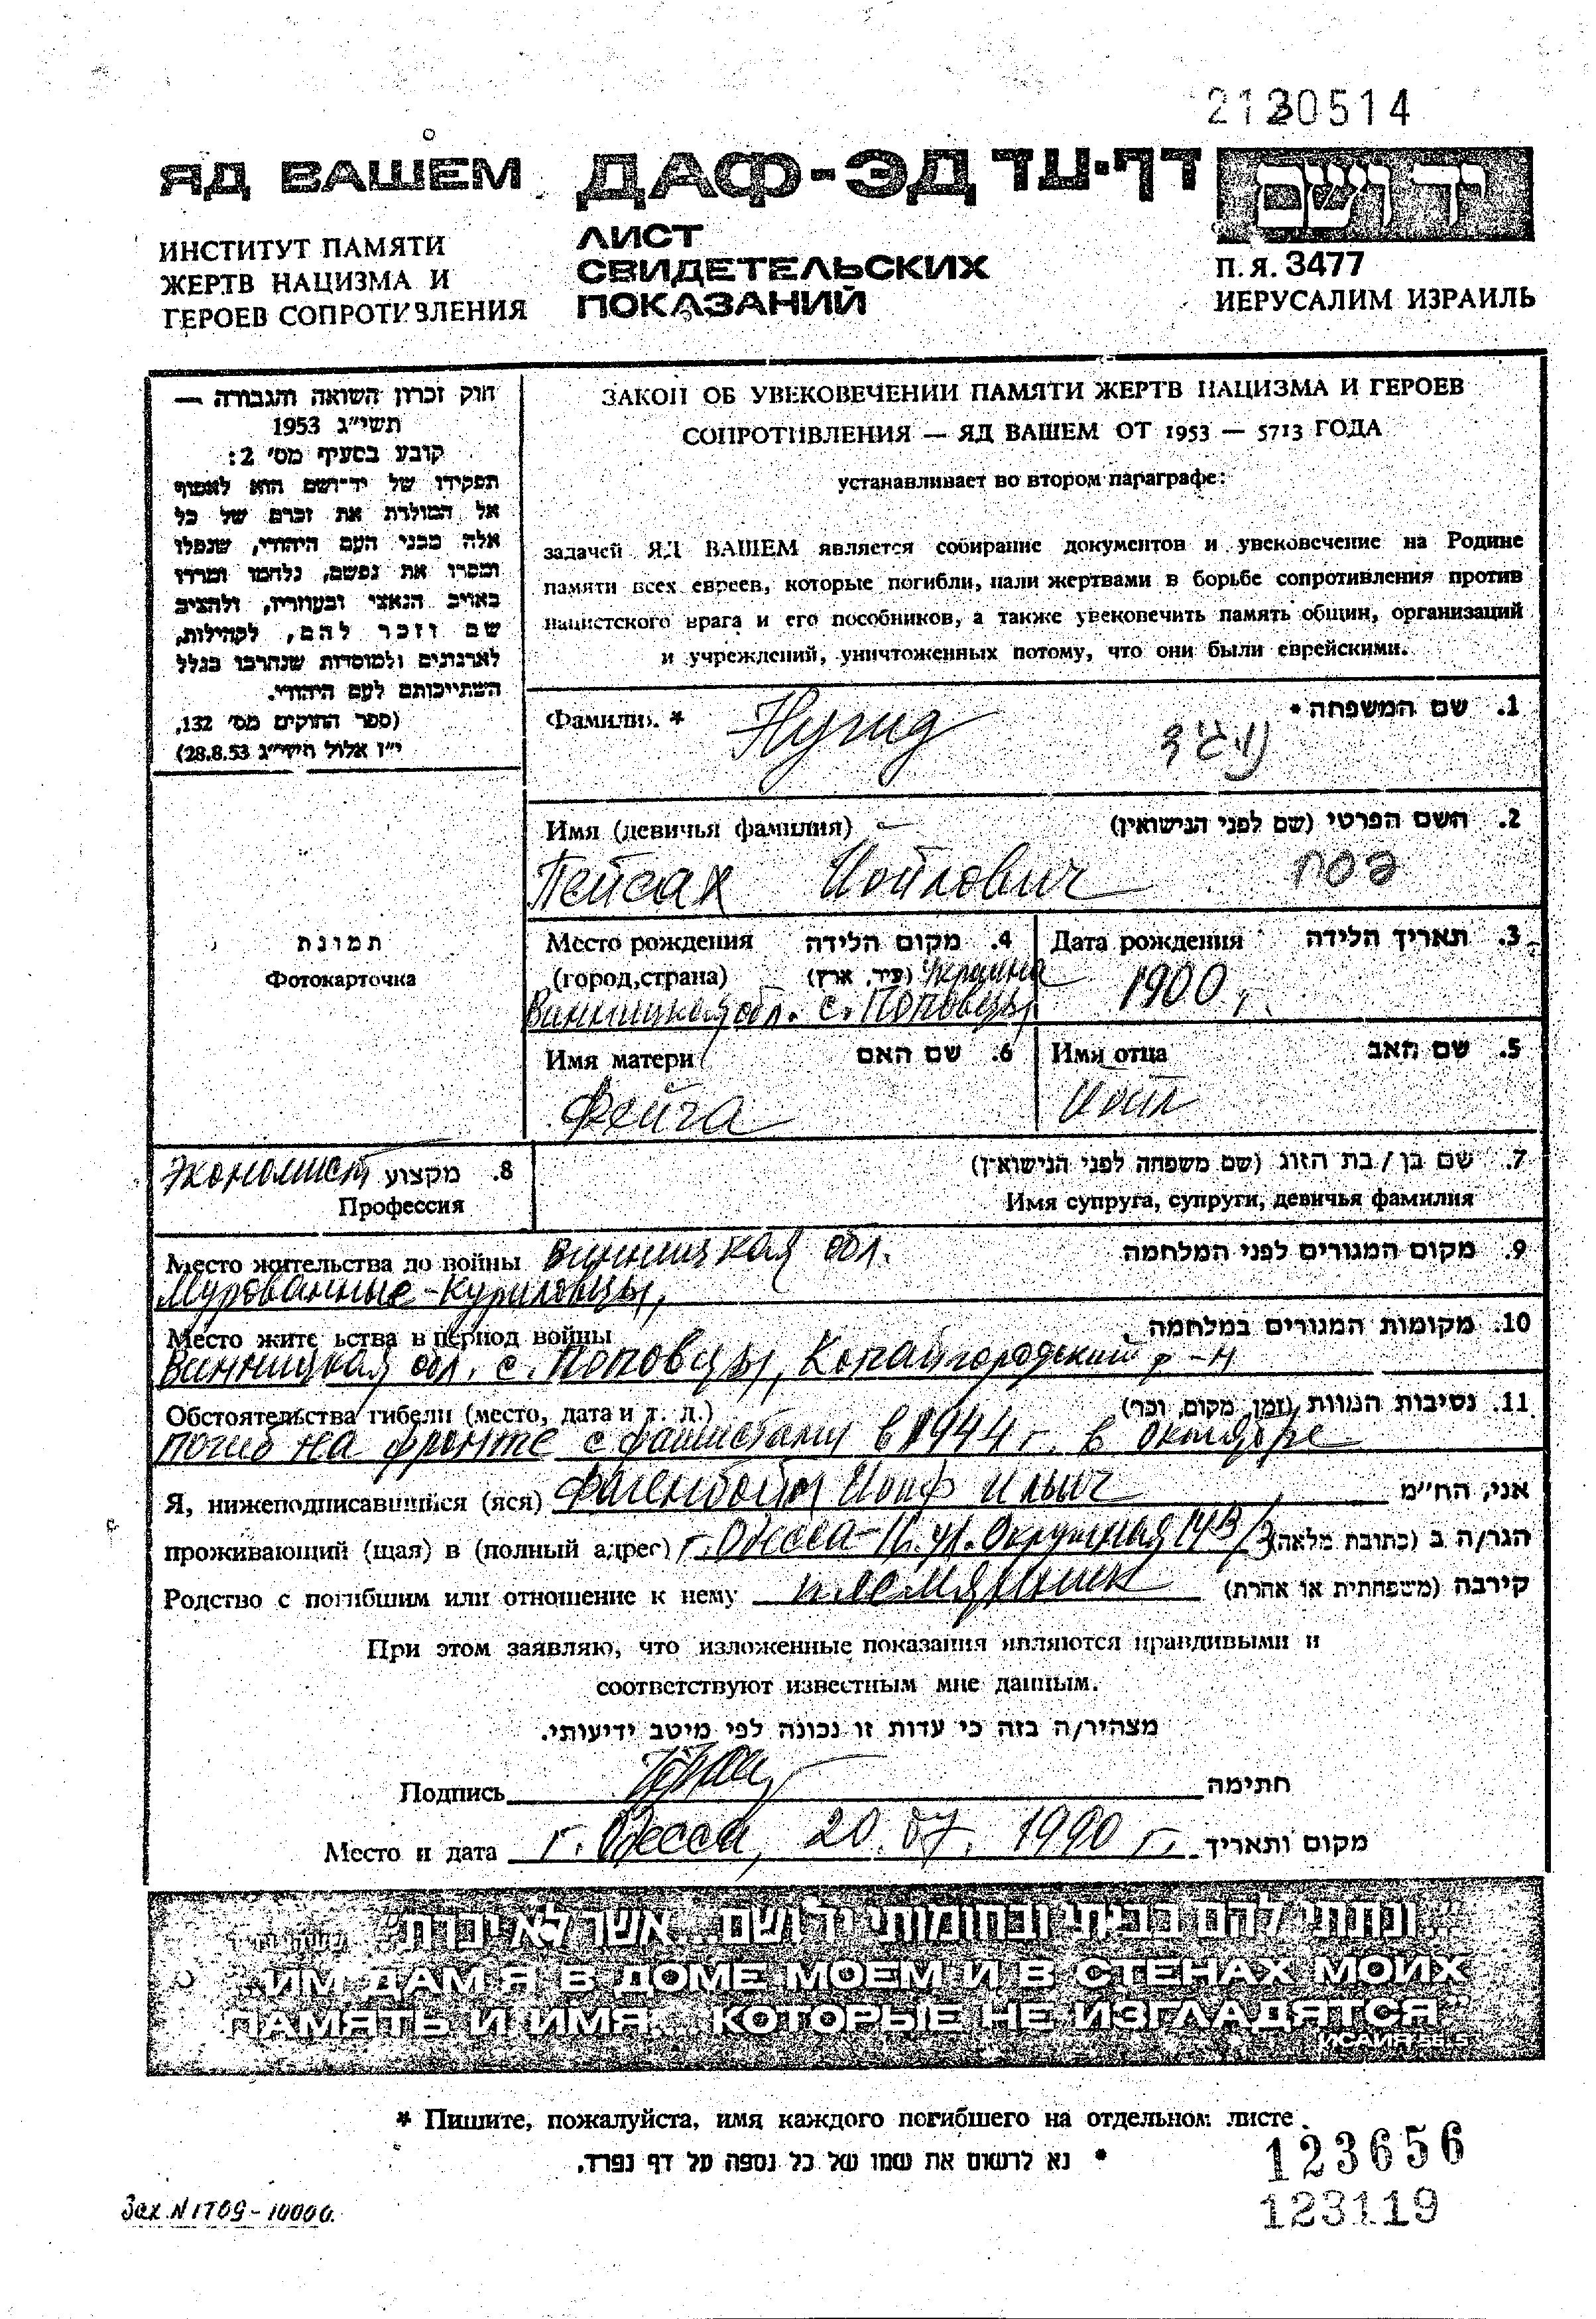 2130514
ЯД ВАШЕМ
ИНСТИТУТ ПАМЯТИ
ЖЕРТВ НАЦИЗМА И
ГЕРОЕВ СОПРОТИВЛЕНИЯ
ДАФ-ЭД דף-עד
ЛИСТ
СВИДЕТЕЛЬСКИХ
ПОКАЗАНИЙ
יד ושם
П.Я. 3477
ИЕРУСАЛИМ ИЗРАИЛЬ
חוק זכרון השואה והגבורה —
תשי״ג 1953
קובע בסעיף מס׳ 2:
תפקידו של יד־ושם הוא לאסוף
אל המולדת את זכרם של כל
אלה מבני העם היהודי, שנפלו
ומסרו את נפשם, נלחמו ומרדו
באויב הנאצי ובעוזריו, ולהציב
שם וזכר להם, לקהילות,
לארגונים ולמוסדות שנהרבו בגלל
השתייכותם לעם היהודי.
(ספר החוקים מס׳ 132,
י״ז אלול תשי״ג 28.8.53)
ЗАКОН ОБ УВЕКОВЕЧЕНИИ ПАМЯТИ ЖЕРТВ НАЦИЗМА И ГЕРОЕВ
СОПРОТИВЛЕНИЯ — ЯД ВАШЕМ ОТ 1953 — 5713 ГОДА
устанавливает во втором параграфе:
задачей ЯД ВАШЕМ является собирание документов и увековечение на Родине
памяти всех евреев, которые погибли, пали жертвами в борьбе сопротивления против
нацистского врага и его пособников, а также увековечить память общин, организаций
и учреждений, уничтоженных потому, что они были еврейскими.
Фамилия * Нугид נוגיד 1. שם המשפחה *
Имя (девичья фамилия) 2. השם הפרטי (שם לפני הנישואין)
Пейсах Иойлович פסח
Место рождения 4. מקום הלידה
(город,страна) (עיר, ארץ) Украина
Винницкая обл. с. Поповцы
Дата рождения 3. תאריך הלידה
1900 г.
Имя матери 6. שם האם
Фейга
Имя отца 5. שם האב
Иойл
תמונת
Фотокарточка
Экономист 8. מקצוע
Профессия
7. שם בן / בת הזוג (שם משפחה לפני הנישואין)
Имя супруга, супруги, девичья фамилия
Место жительства до войны Винницкая обл. 9. מקום המגורים לפני המלחמה
Мурованные-Куриловцы,
Место жительства в период войны 10. מקומות המגורים במלחמה
Винницкая обл. с. Поповцы, Копайгородский р-н
Обстоятельства гибели (место, дата и т. д.) 11. נסיבות המוות (זמן, מקום, וכו׳)
погиб на фронте с фашистами в 1944 г. в октябре
Я, нижеподписавшийся (яся) Фагенбойм Иойф Ильич אני, הח״מ
проживающий (щая) в (полный адрес) г. Одесса-11. ул. Окружная הגר/ה ב (כתובת מלאה)
Родство с погибшим или отношение к нему племянник קירבה (משפחתית או אחרת)
При этом заявляю, что изложенные показания являются правдивыми и
соответствуют известным мне данным.
מצהיר/ה בזה כי עדות זו נכונה לפי מיטב ידיעותי.
Подпись חתימה
Место и дата г. Одесса, 20.07.1990 г. מקום ותאריך
״...ונתתי להם בביתי ובחומותי יד ושם...אשר לא יכרת״
"...ИМ ДАМ Я В ДОМЕ МОЕМ И В СТЕНАХ МОИХ
ПАМЯТЬ И ИМЯ... КОТОРЫЕ НЕ ИЗГЛАДЯТСЯ"
ИСАИЯ 56.5
* Пишите, пожалуйста, имя каждого погибшего на отдельном листе
* נא לרשום את שמו של כל נספה על דף נפרד.
123656
123119
Зак. N 1709-10000.